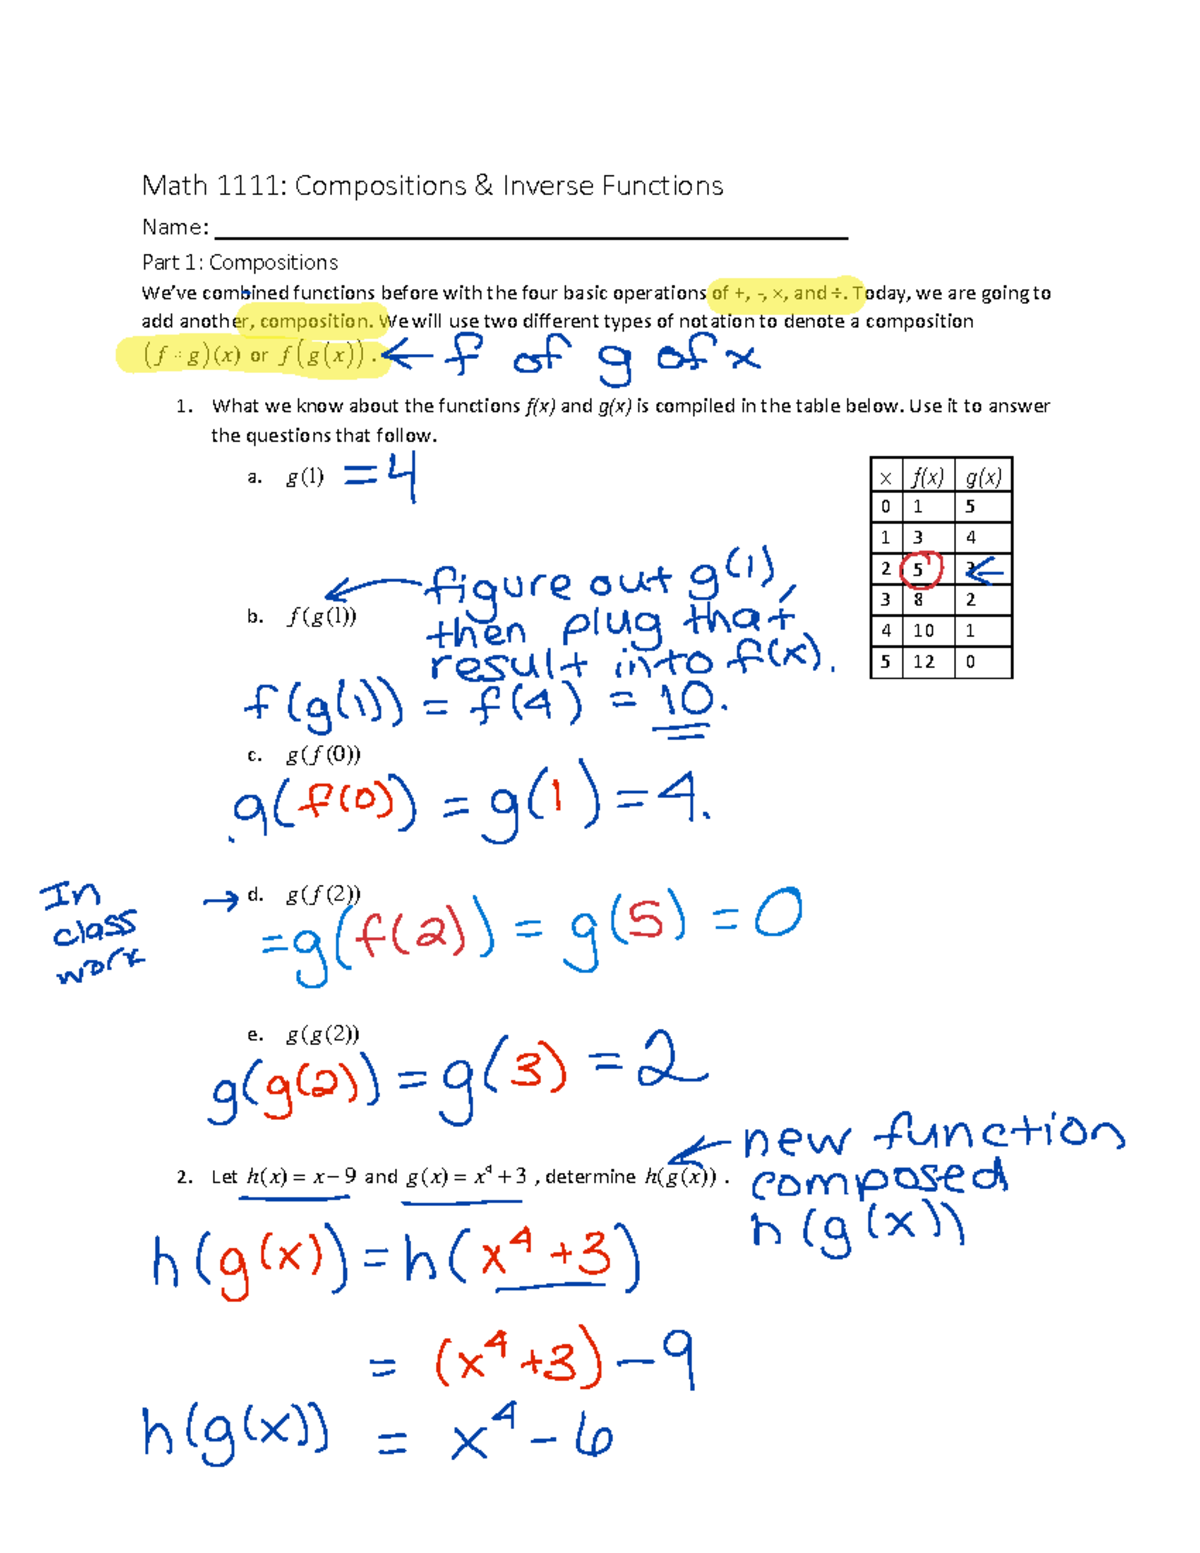 Math 1111: Compositions & Inverse Functions
Name:
Part 1: Compositions
We've combined functions before with the four basic operations of +, -, ×, and ÷. Today, we are going to
add another, composition. We will use two different types of notation to denote a composition
(f ∘ g)(x) or f(g(x)). ← f of g of x
1. What we know about the functions f(x) and g(x) is compiled in the table below. Use it to answer
the questions that follow.
a. g(1) = 4
x f(x) g(x)
0 1 5
1 3 4
2 5 ←
3 8 2
4 10 1
5 12 0
← figure out g(1),
b. f(g(1)) then plug that
result into f(x).
f(g(1)) = f(4) = 10.
c. g(f(0))
g(f(0)) = g(1) = 4.
In
class
work
→ d. g(f(2))
= g(f(2)) = g(5) = 0
e. g(g(2))
g(g(2)) = g(3) = 2
2. Let h(x) = x – 9 and g(x) = x⁴ + 3 , determine h(g(x)) .
← new function
composed
h(g(x))
h(g(x)) = h(x⁴ + 3)
= (x⁴ + 3) – 9
h(g(x)) = x⁴ – 6